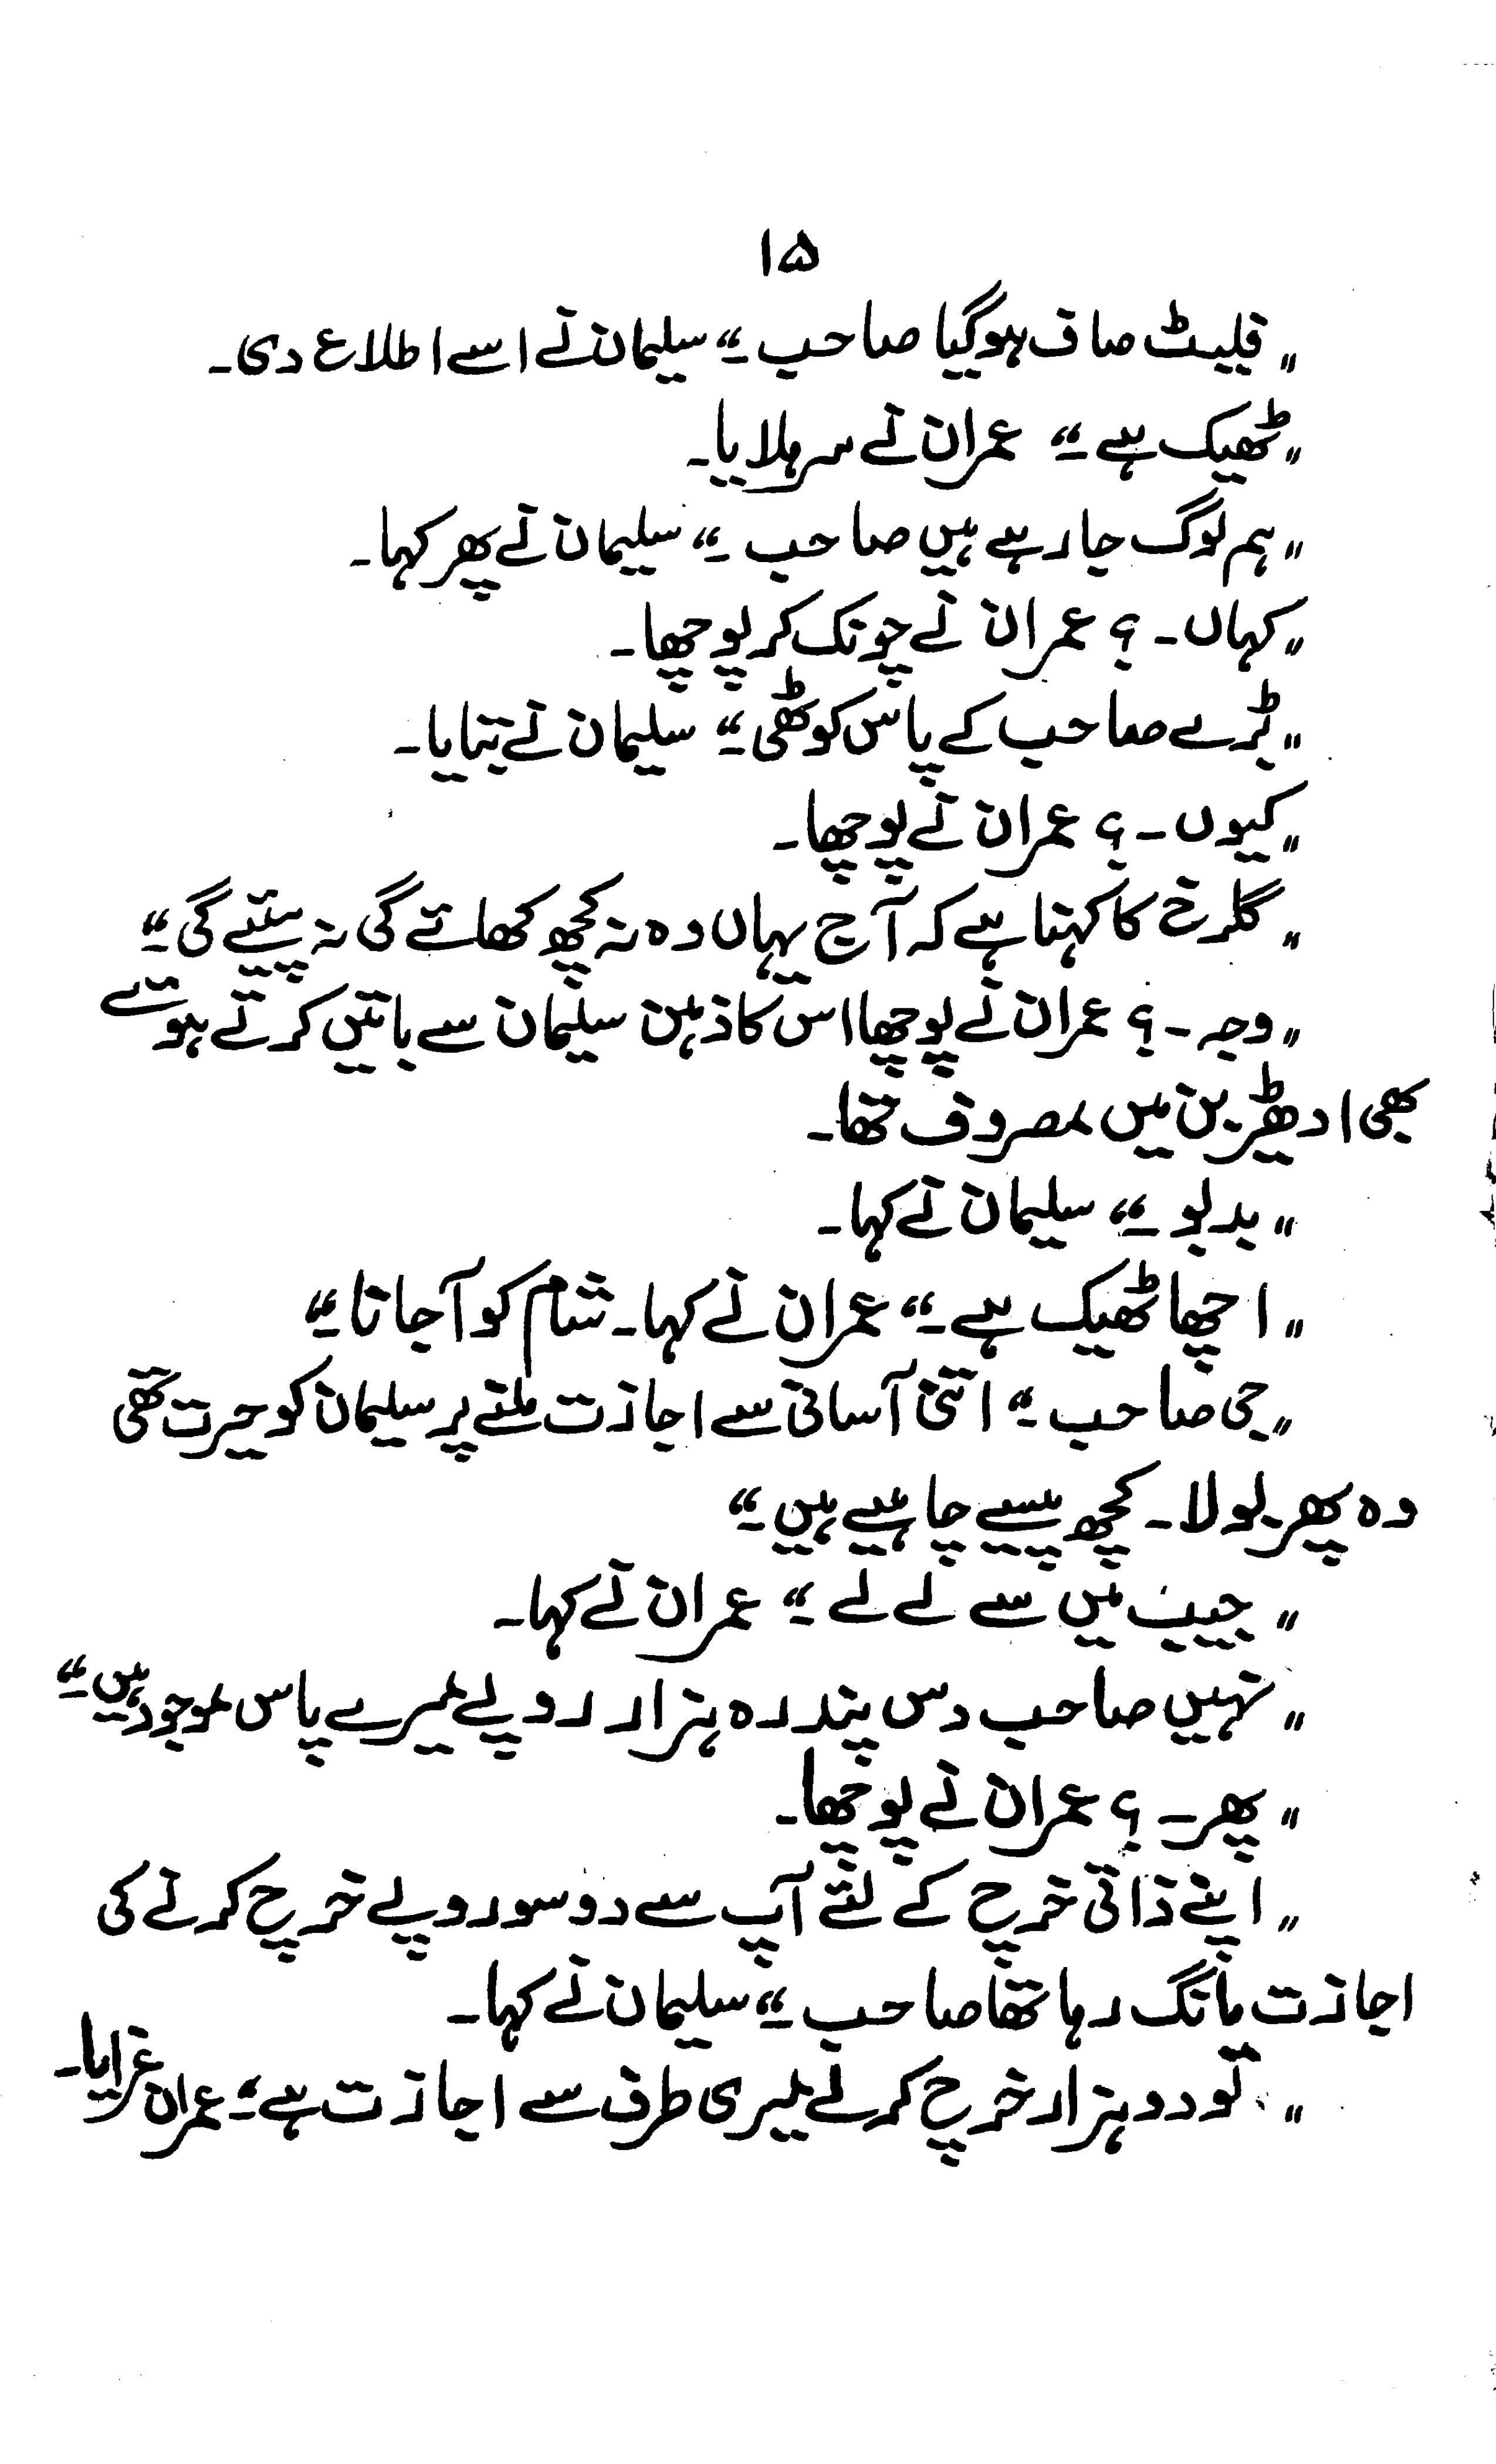 ۱۵
"فلیٹ صاف ہوگیا صاحب۔" سلیمان نے اسے اطلاع دی۔
"ٹھیک ہے۔" عمران نے سر ہلایا۔
"ہم لوگ جا رہے ہیں صاحب۔" سلیمان نے پھر کہا۔
"کہاں۔؟ عمران نے چونک کر پوچھا۔
"بڑے صاحب کے پاس کوٹھی۔" سلیمان نے بتایا۔
"کیوں۔؟ عمران نے پوچھا۔
"گلرخ کا کہنا ہے کہ آج یہاں وہ نہ کچھ کھائے گی نہ پیئے گی۔"
"وجہ۔؟ عمران نے پوچھا اس کا ذہن سلیمان سے باتیں کرتے ہوئے
بھی ادھیڑبن میں مصروف تھا۔
"بدبو۔" سلیمان نے کہا۔
"اچھا ٹھیک ہے۔" عمران نے کہا۔ شام کو آجانا۔"
"جی صاحب۔" اتنی آسانی سے اجازت ملنے پر سلیمان کو حیرت تھی
وہ پھر بولا۔ کچھ پیسے چاہیے ہیں۔"
"جیب میں سے لے لے۔" عمران نے کہا۔
"نہیں صاحب دس پندرہ ہزار روپے میرے پاس موجود ہیں۔"
"پھر۔؟ عمران نے پوچھا۔
"اپنے ذاتی خرچ کے لئے آپ سے دو سو روپے خرچ کرنے کی
اجازت مانگ رہا تھا صاحب۔" سلیمان نے کہا۔
"تو دو ہزار خرچ کرلے میری طرف سے اجازت ہے۔" عمران غرایا۔